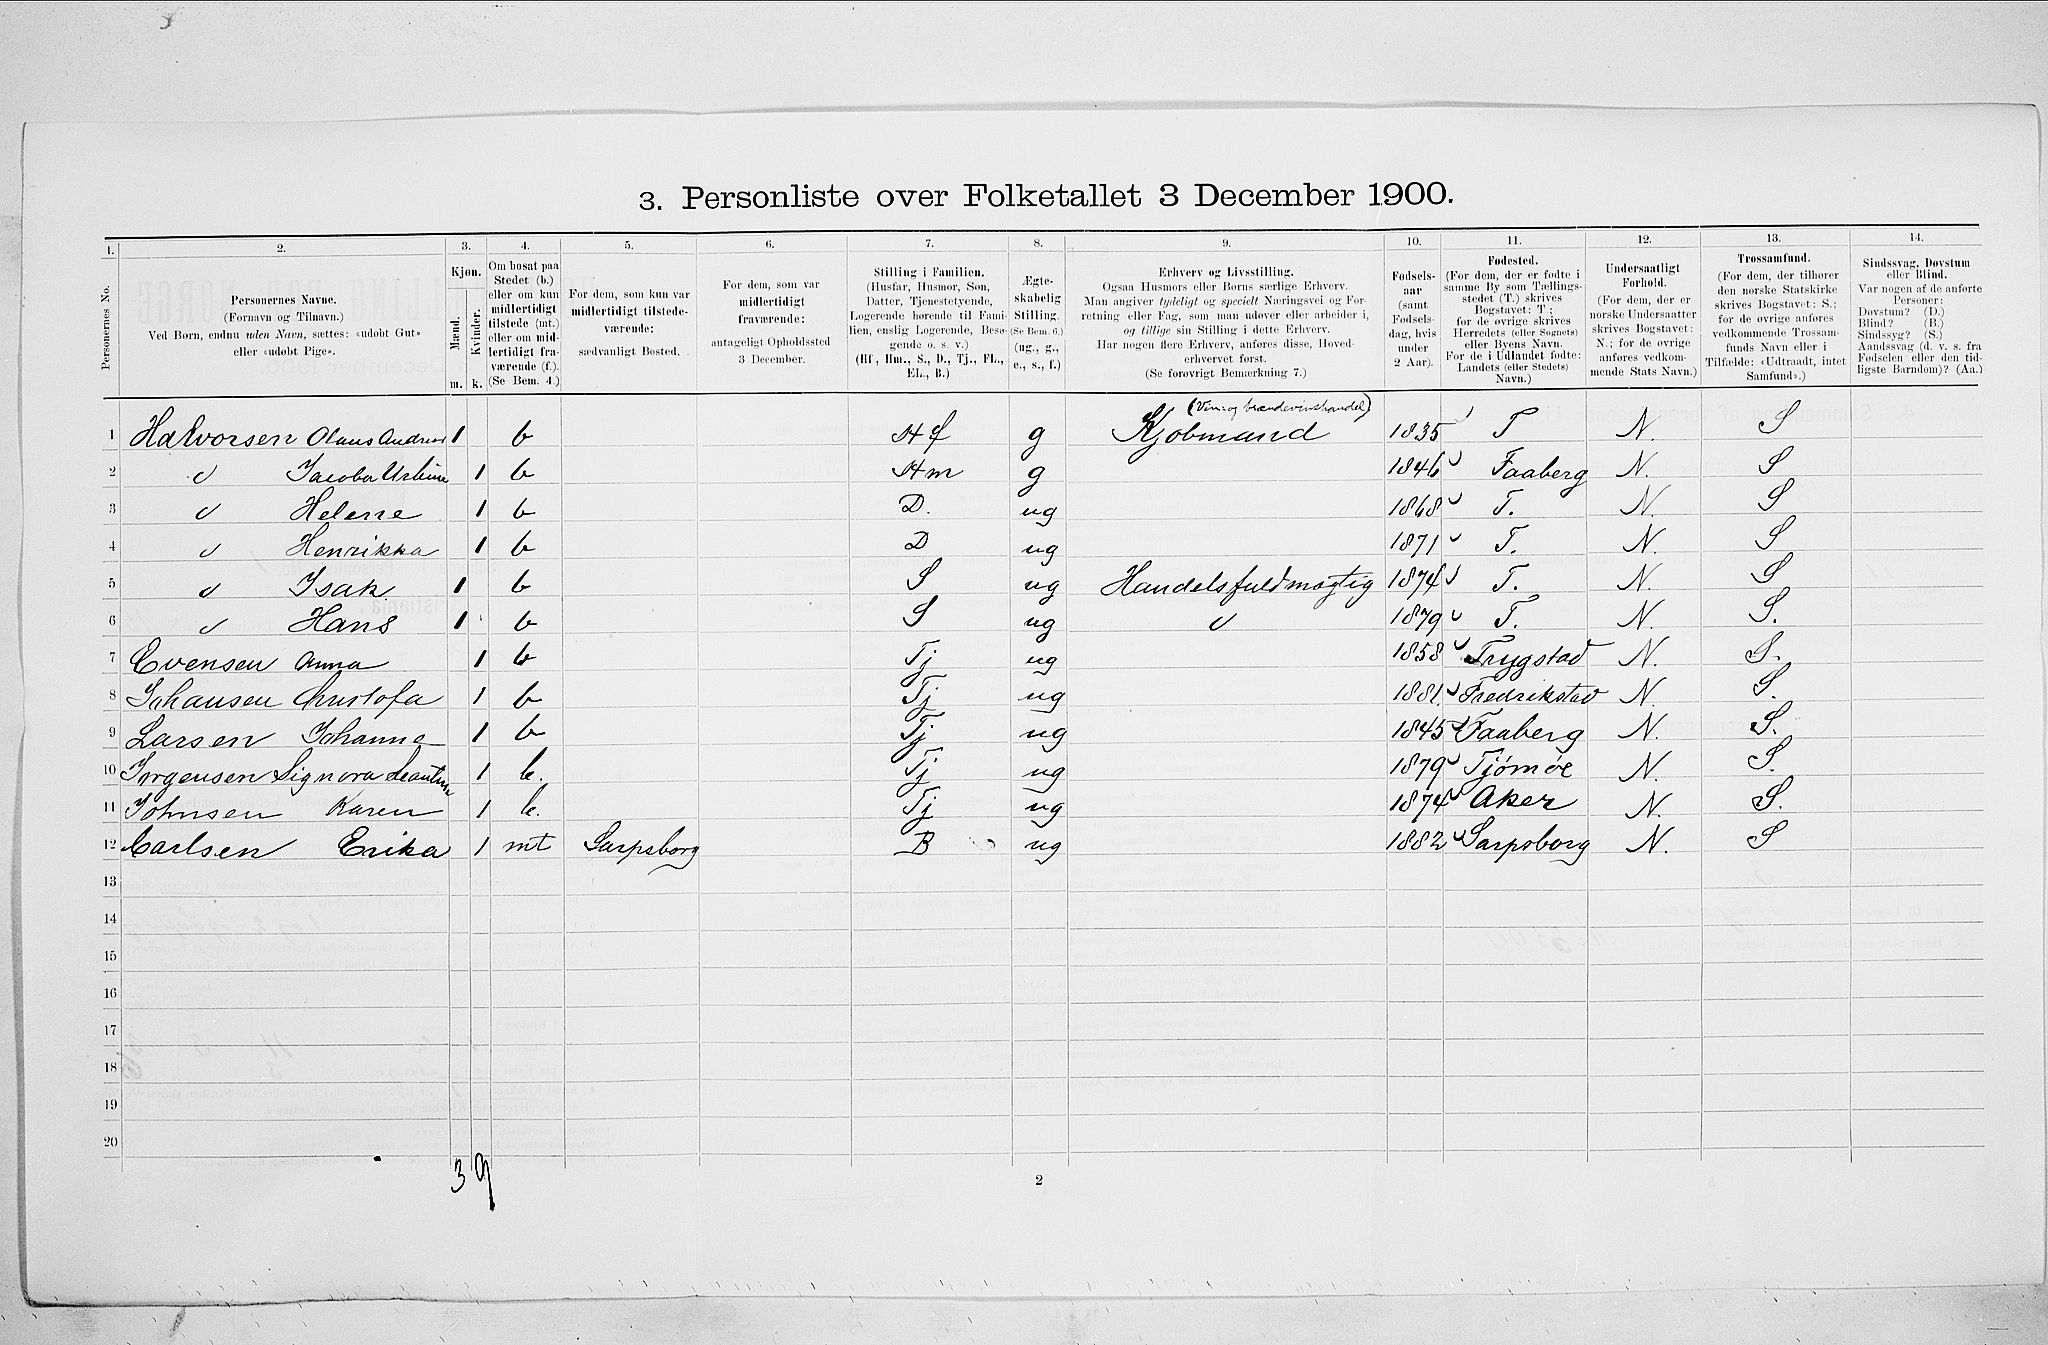 3. Personliste over Folketallet 3 December 1900.
1. 2. 3. 4. 5. 6. 7. 8. 9. 10. 11. 12. 13. 14.
Personernes No.
Personernes Navne.
(Fornavn og Tilnavn.)
Ved Børn, endnu uden Navn, sættes: «udøbt Gut»
eller «udøbt Pige».
Kjøn.
Mænd.
Kvinder.
m. k.
Om bosat paa
Stedet (b.)
eller om kun
midlertidigt
tilstede (mt.)
eller om mid-
lertidigt fra-
værende (f.).
(Se Bem. 4.)
For dem, som kun var
midlertidigt tilstede-
værende:
sædvanligt Bosted.
For dem, som var
midlertidigt
fraværende:
antageligt Opholdssted
3 December.
Stilling i Familien.
(Husfar, Husmor, Søn,
Datter, Tjenestetyende,
Logerende hørende til Fami-
lien, enslig Logerende, Besø-
gende o. s. v.)
(Hf., Hm., S., D., Tj., FL.,
EL., B.)
Ægte-
skabelig
Stilling.
(Se Bem. 6.)
(ug., g.,
e., s., f.)
Erhverv og Livsstilling.
Ogsaa Husmors eller Børns særlige Erhverv.
Man angiver tydeligt og specielt Næringsvei og For-
retning eller Fag, som man udøver eller arbeider i,
og tillige sin Stilling i dette Erhverv.
Har nogen flere Erhverv, anføres disse, Hoved-
erhvervet først.
(Se forøvrigt Bemærkning 7.)
Fødsels-
aar
(samt
Fødsels-
dag, hvis
under
2 Aar).
Fødested.
(For dem, der er fødte i
samme By som Tællings-
stedet (T.) skrives
Bogstavet: T;
for de øvrige skrives
Herredets (eller Sognets)
eller Byens Navn.
For de i Udlandet fødte:
Landets (eller Stedets)
Navn.)
Undersaatligt
Forhold.
(For dem, der er
norske Undersaatter
skrives Bogstavet:
N.; for de øvrige
anføres vedkom-
mende Stats Navn.)
Trossamfund.
(For dem, der tilhører
den norske Statskirke
skrives Bogstavet: S.;
for de øvrige anføres
vedkommende Trossam-
funds Navn eller i
Tilfælde: «Udtraadt, intet
Samfund».)
Sindssvag, Døvstum
eller Blind.
Var nogen af de anførte
Personer:
Døvstum? (D.)
Blind? (B.)
Sindssyg? (S.)
Aandssvag (d. v. s. fra
Fødselen eller den tid-
ligste Barndom)? (Aa.)
(Vin- og brændevinshandel)
1 Halvorsen Olaus Andreas 1 b Hf g Kjøbmand 1835 T N. S
2 " Jacoba 1 b Hm g 1846 Faaberg N. S
3 " Helene 1 b D. ug 1868 T. N. S
4 " Henrikka 1 b D ug 1871 T. N. S
5 " Isak 1 b S ug Handelsfuldmægtig 1874 T. N. S
6 " Hans 1 b S ug " 1879 T. N. S.
7 Evensen Anna 1 b Tj ug 1858 Trygstad N. S.
8 Johansen Christofa 1 b Tj ug 1881. Fredrikstad N. S.
9 Larsen Johanne 1 b Tj ug 1845 Faaberg N. S.
10 Jørgensen Signora 1 b. Tj ug 1879 Tjømøe N. S.
11 Johnsen Karen 1 b. Tj ug 1874 Aker N. S.
12 Carlsen Erika 1 mt Sarpsborg B ug 1882 Sarpsborg N. S
13
14
15
16
17
18
19
20
3 9
2